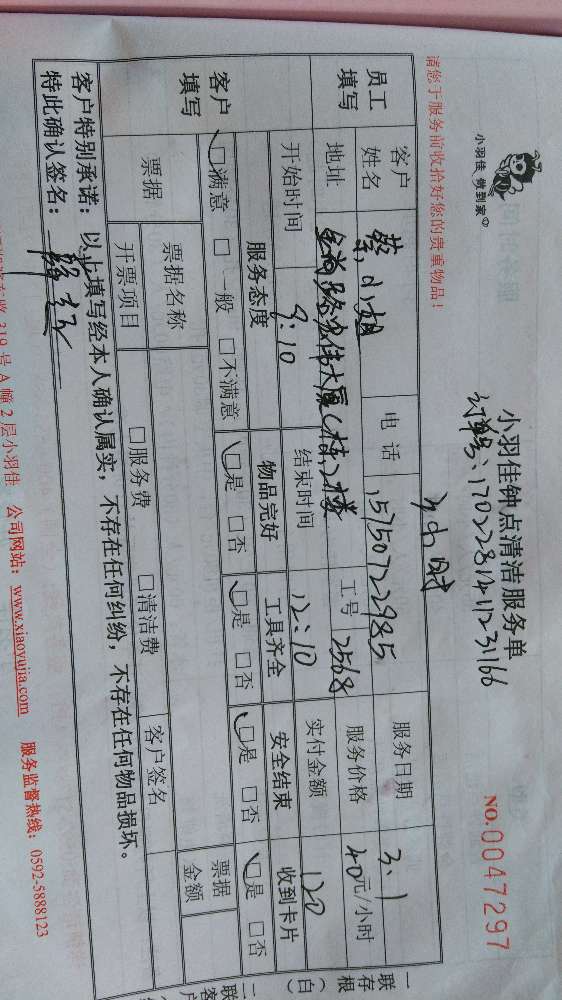 小羽佳 做到家
小羽佳钟点清洁服务单
NO.0047297
订单号:17022814411231166
请您于服务前收拾好您的贵重物品!
3小时
员工填写
客户姓名 蔡小姐 电话 15750722985 服务日期 3.1
地址 工号 2518 服务价格 40元/小时
开始时间 9:10 结束时间 12:10 实付金额 120
客户填写
服务态度 物品完好 工具齐全 安全结束 收到卡片
□满意 □一般 □不满意 □是 □否 □是 □否 □是 □否 □是 □否
票据 票据名称 客户签名 票据金额
开票项目 □服务费 □清洁费
客户特别承诺:以上填写经本人确认属实,不存在任何纠纷,不存在任何物品损坏。
特此确认签名:
319号A幢2层小羽佳 公司网站:www.xiaoyujia.com 服务监督热线:0592-5888123
一联存根(白)
二联客户